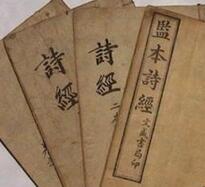 詩經
詩經
監本詩經
文成書局印